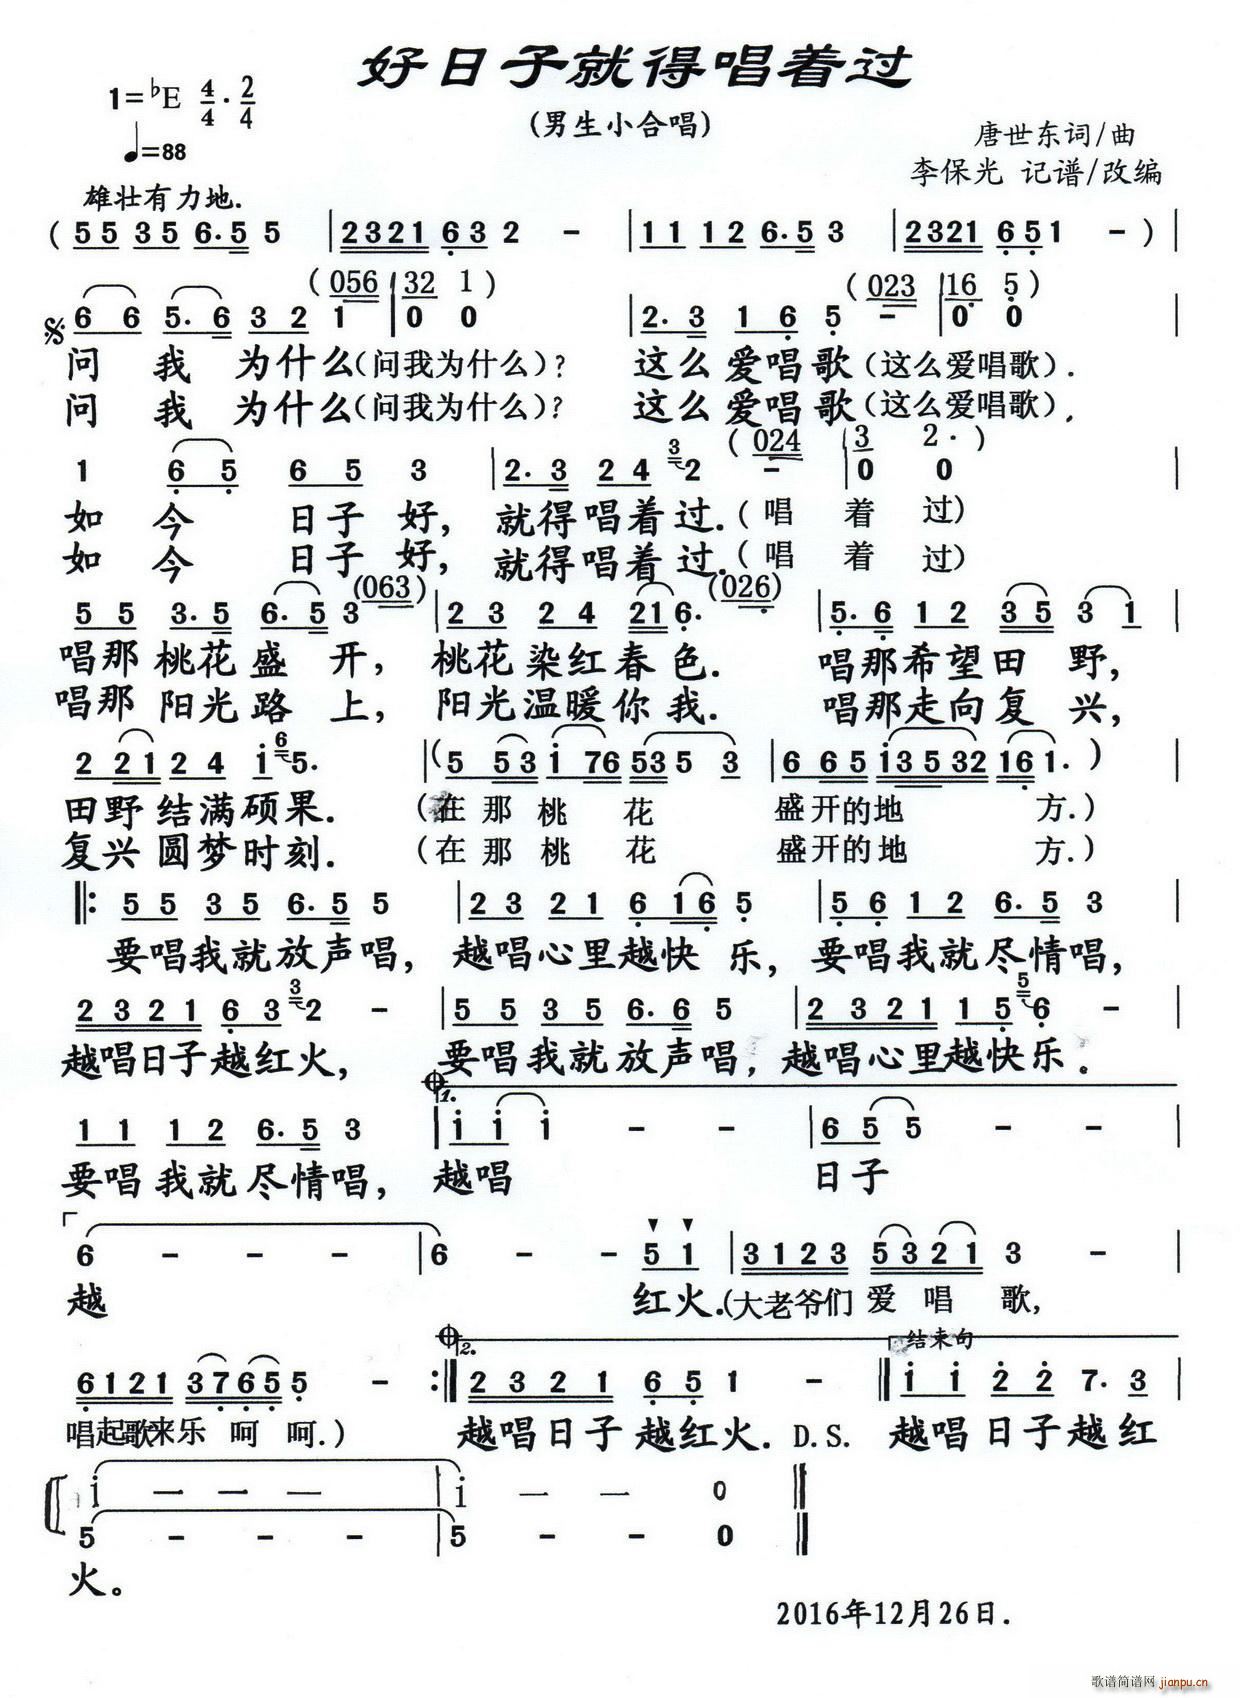 好日子就得唱着过
1=♭E 4/4 · 2/4
(男生小合唱)
♩=88
唐世东词/曲
李保光 记谱/改编
雄壮有力地.
( 55 35 6·5 5 | 2321 63 2 - | 11 12 6·5 3 | 2321 651 - ) |
(056 | 32 1 ) (023 | 16 5 )
6 6 5·6 3 2 1 | 0 0 | 2·3 1 6 5 - | 0 0 |
问 我 为什么(问我为什么)? 这么爱唱歌(这么爱唱歌).
问 我 为什么(问我为什么)? 这么爱唱歌(这么爱唱歌).
(024 | 3 2· )
1 6 5 6 5 3 | 2·3 2 4 3 2 - | 0 0 |
如 今 日子 好, 就得唱着过.(唱 着 过)
如 今 日子 好, 就得唱着过.(唱 着 过)
(063) (026)
5 5 3·5 6·5 3 | 2 3 2 4 21 6· | 5·6 1 2 35 3 1 |
唱那 桃花 盛 开, 桃花染红春 色. 唱那希望田 野,
唱那 阳光 路 上, 阳光温暖你 我. 唱那走向复 兴,
2 21 2 4 i 6 5· | (5 53 i 76 535 3 | 6 65 i3532 16 1· ) |
田野 结满 硕果. (在 那 桃 花 盛开的地 方.)
复兴 圆梦时刻. (在 那 桃 花 盛开的地 方.)
‖: 5 5 3 5 6·5 5 | 2 3 2 1 6 16 5 | 5 6 1 2 6·5 3 |
要唱我就放声唱, 越唱心里越快 乐, 要唱我就尽情唱,
2 3 2 1 6 3 3 2 - | 5 5 3 5 6·6 5 | 2 3 2 1 1 5 5 6 - |
越唱日子越红火, 要唱我就放声唱, 越唱心里越快乐.
1.
1 1 1 2 6·5 3 | i i i - - | 6 5 5 - - |
要唱 我就 尽情唱, 越唱 日子
6 - - - | 6 - - 5 1 | 3123 5321 3 - |
越 红火.(大老爷们 爱 唱 歌,
2. 结束句
6121 37655 - :‖ 2 3 2 1 6 5 1 - ‖ i i 2 2 7·3 |
唱起歌来乐 呵 呵.) 越唱日子 越红火. D.S. 越唱日子越红
i - - - | i - - 0 ‖
5 - - - | 5 - - 0 ‖
火。
2016年12月26日.
歌谱简谱网 jianpu.cn